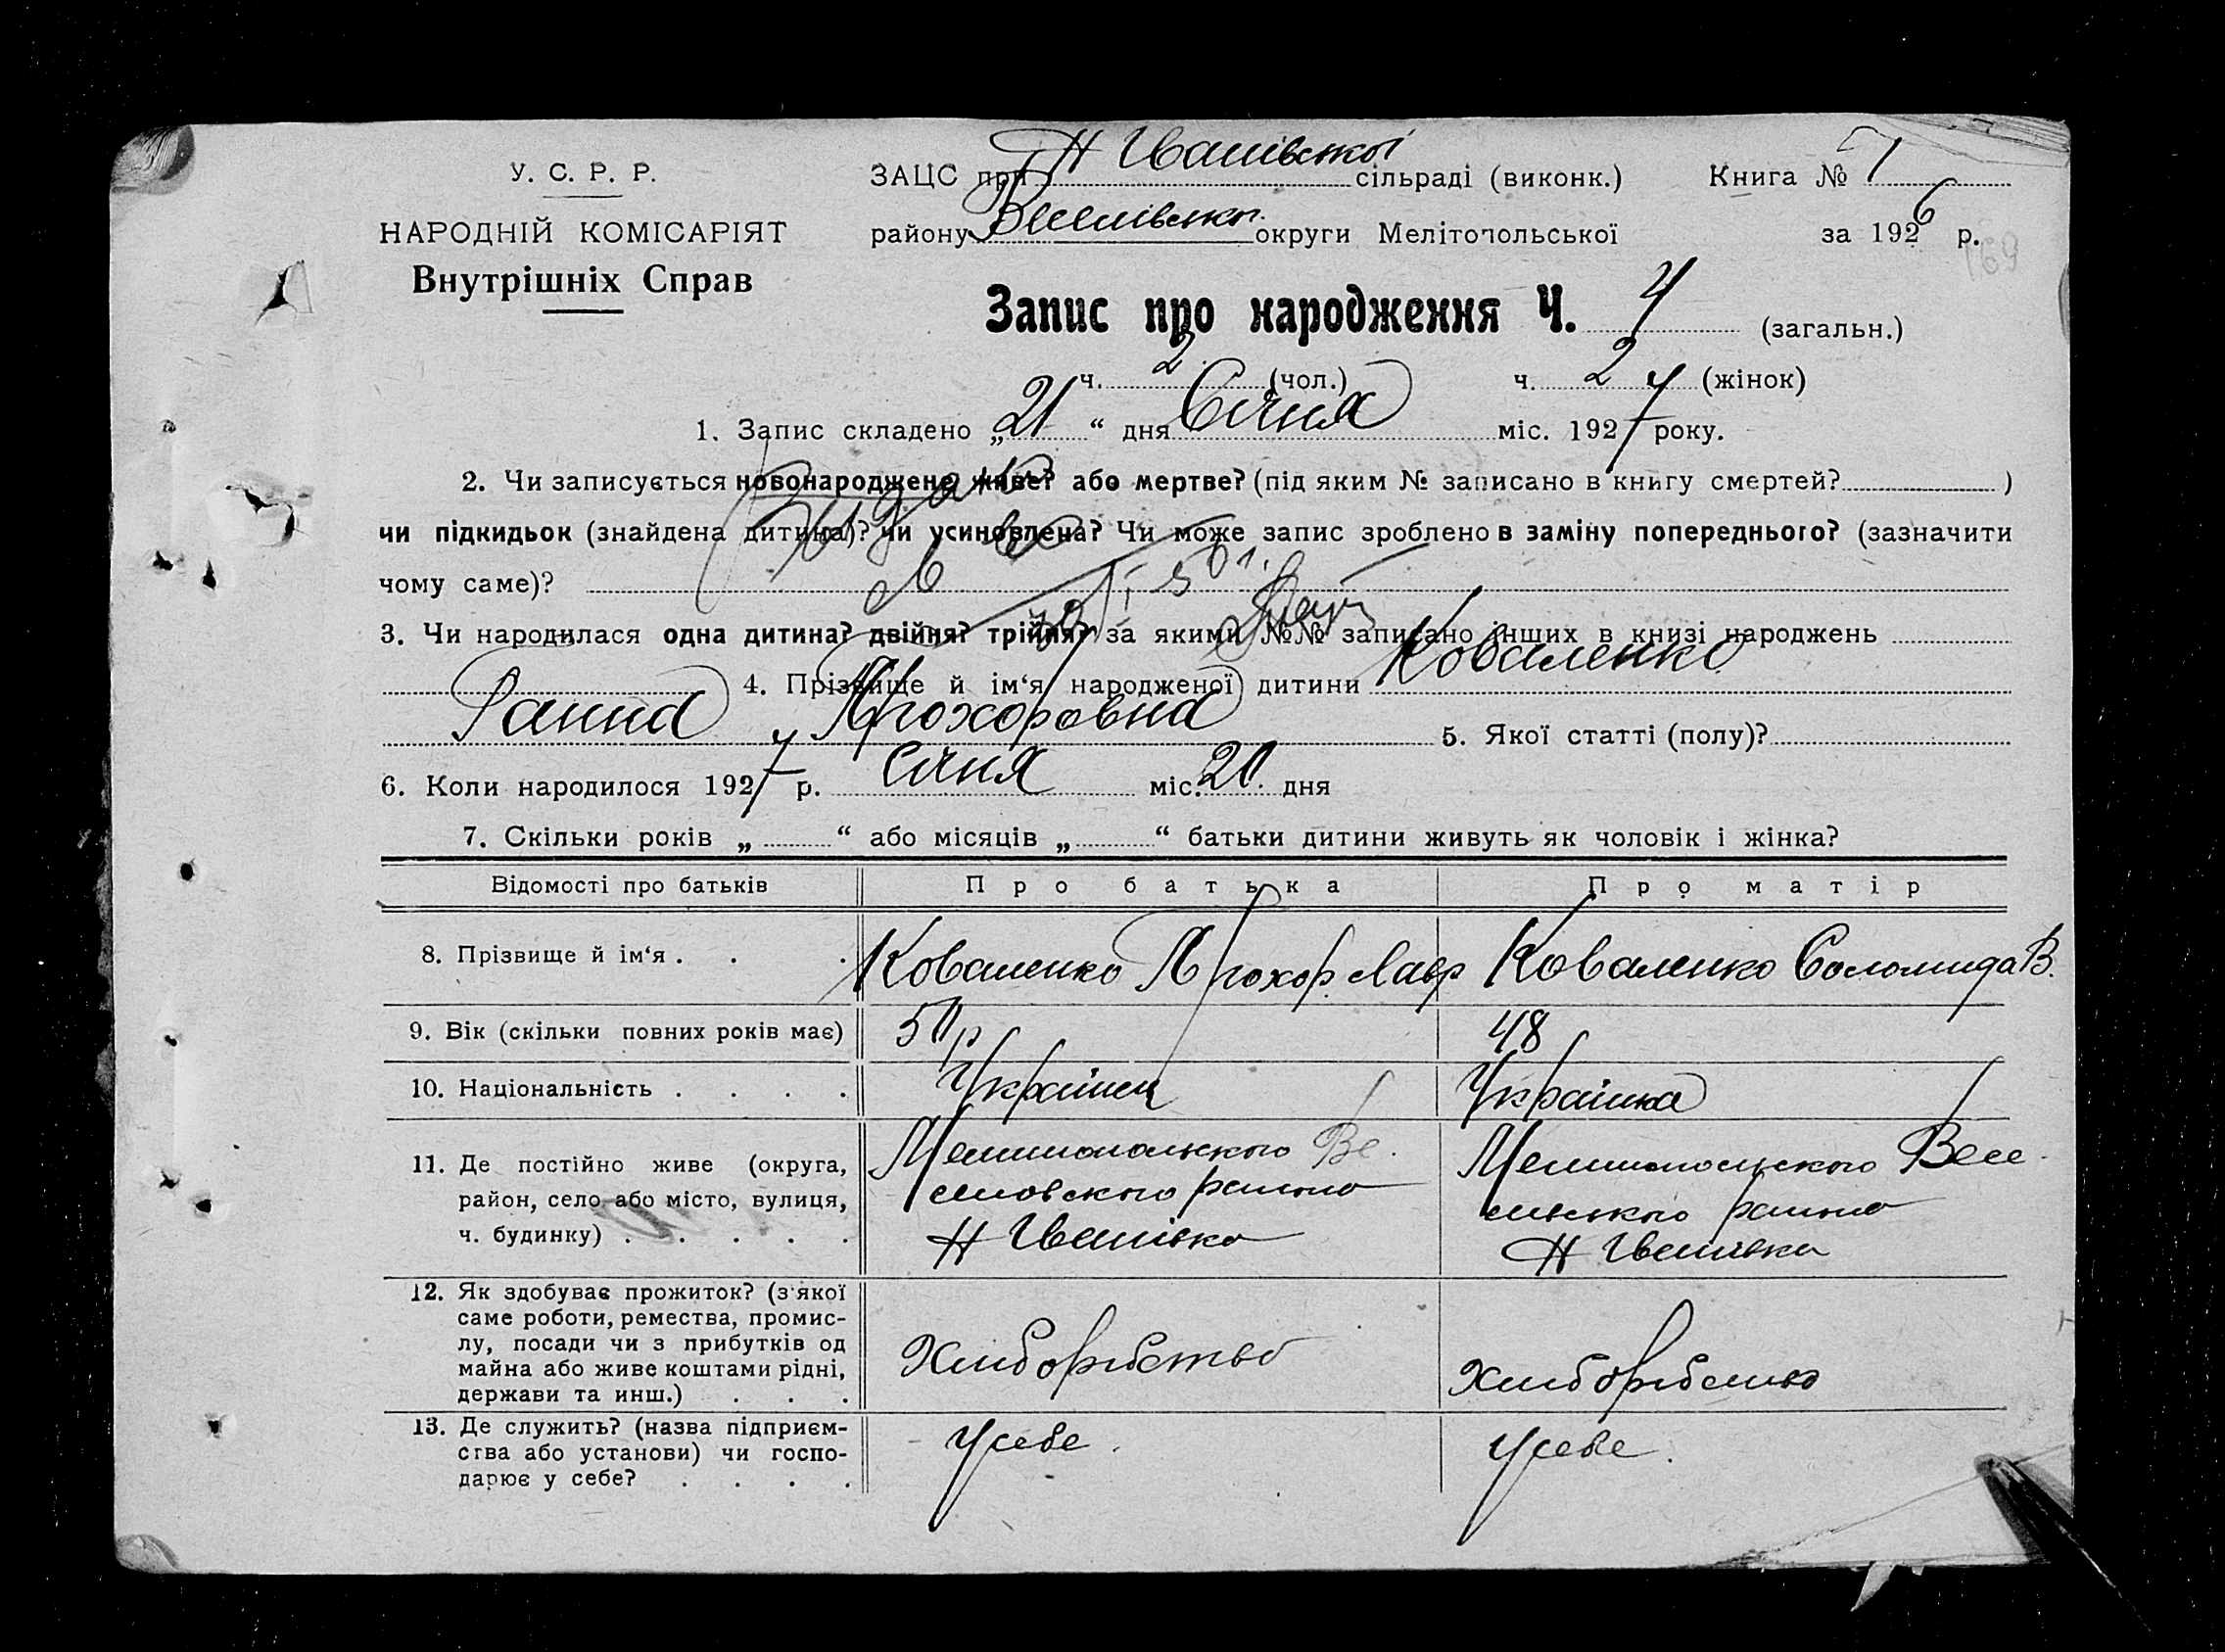 У. С. Р. Р.
НАРОДНІЙ КОМІСАРІЯТ
Внутрішніх Справ
ЗАЦС при Н Іванівської сільраді (виконк.) Книга № 1
району Веселівськ. округи Мелітопольської за 1926 р.
169
Запис про народження Ч. 4 (загальн.)
ч. 2 (чол.) ч. 2 (жінок)
1. Запис складено „ 21 “ дня Січня міс. 1927 року.
2. Чи записується новонароджене живе? або мертве? (під яким № записано в книгу смертей? )
чи підкидьок (знайдена дитина)? чи усиновлена? Чи може запис зроблено в заміну попереднього? (зазначити
чому саме)?
3. Чи народилася одна дитина? двійня? трійня? за якими №№ записано інших в книзі народжень
4. Прізвище й ім‘я народженої дитини Коваленко
Ганна Прохоровна 5. Якої статті (полу)?
6. Коли народилося 1927 р. січня міс. 20 дня
7. Скільки років „ “ або місяців „ “ батьки дитини живуть як чоловік і жінка?
Відомості про батьків Про батька Про матір
8. Прізвище й ім‘я . . . Коваленко Прохор Лавр Коваленко Соломида В.
9. Вік (скільки повних років має) 50 р 48
10. Національність . . . . Українец Українка
11. Де постійно живе (округа,
район, село або місто, вулиця,
ч. будинку) . . . . .
Мелитопольского Ве.
селовского района
Н Іванівка
Мелитопольского Весе
лівського района
Н Іванівка
12. Як здобуває прожиток? (з якої
саме роботи, ремества, промис-
лу, посади чи з прибутків од
майна або живе коштами рідні,
держави та инш.) . . .
Хлиборбство
Хлиборбство
13. Де служить? (назва підприєм-
ства або установи) чи госпо-
дарює у себе? . . . .
У себе.
У себе.